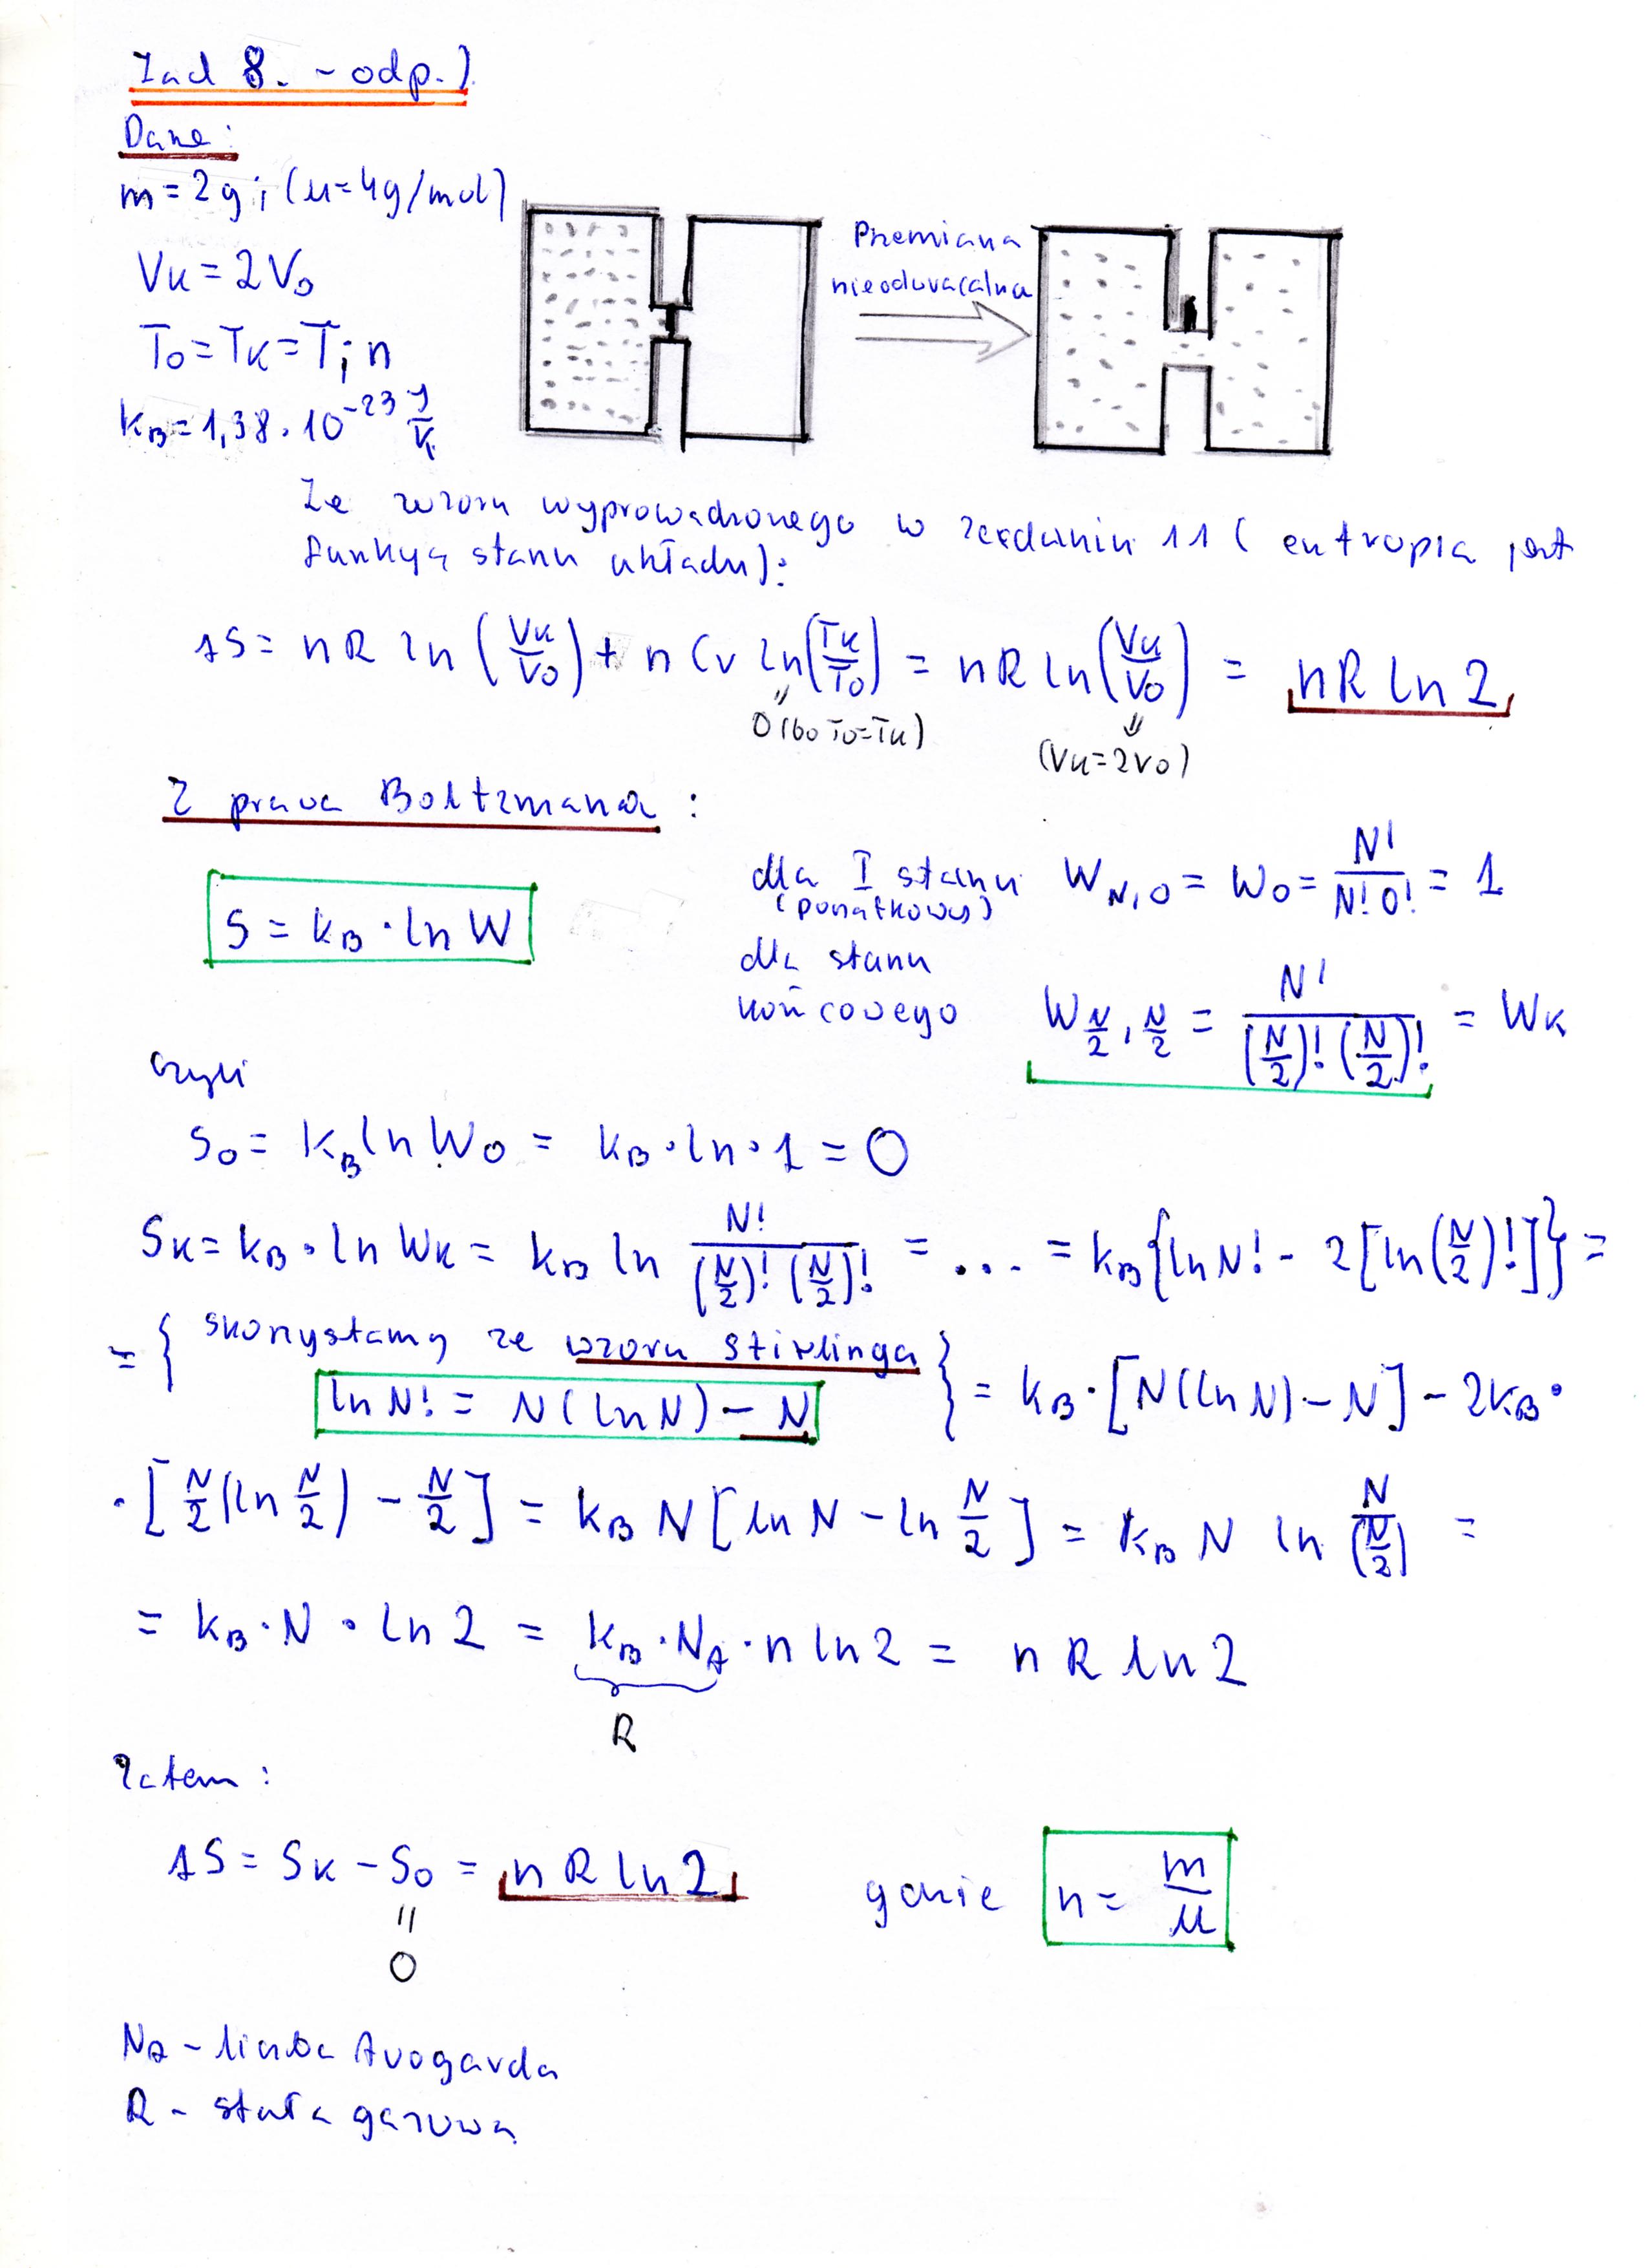 Zad 8. - odp.)
Dane:
m = 2g ; (μ=4g/mol)
Vk = 2V₀
T₀ = Tk = T ; n
k_B = 1,38 · 10⁻²³ J/K
Przemiana
nieodwracalna
Ze wzoru wyprowadzonego w zadaniu 11 ( entropia jest
funkcją stanu układu):
ΔS = nR ln (Vk/V₀) + n Cv ln (Tk/T₀) = nR ln (Vk/V₀) = nR ln 2
0 (bo T₀=Tk)
(Vk=2V₀)
Z prawa Boltzmana :
dla I stanu W_{N,0} = W₀ = N!/(N! 0!) = 1
(początkowy)
S = k_B · ln W
dla stanu
końcowego W_{N/2, N/2} = N!/((N/2)! (N/2)!) = Wk
czyli
S₀ = k_B ln W₀ = k_B · ln · 1 = 0
Sk = k_B · ln Wk = k_B ln N!/((N/2)! (N/2)!) = ... = k_B {ln N! - 2 [ln (N/2)!]} =
= { skorzystamy ze wzoru Stirlinga
ln N! = N (ln N) - N } = k_B · [N (ln N) - N] - 2k_B ·
· [N/2 (ln N/2) - N/2] = k_B N [ln N - ln N/2] = k_B N ln N/(N/2) =
= k_B · N · ln 2 = k_B · N_A · n ln 2 = n R ln 2
R
Zatem :
ΔS = Sk - S₀ = n R ln 2 gdzie n = m/μ
=
0
N_A - liczba Avogarda
R - stała gazowa